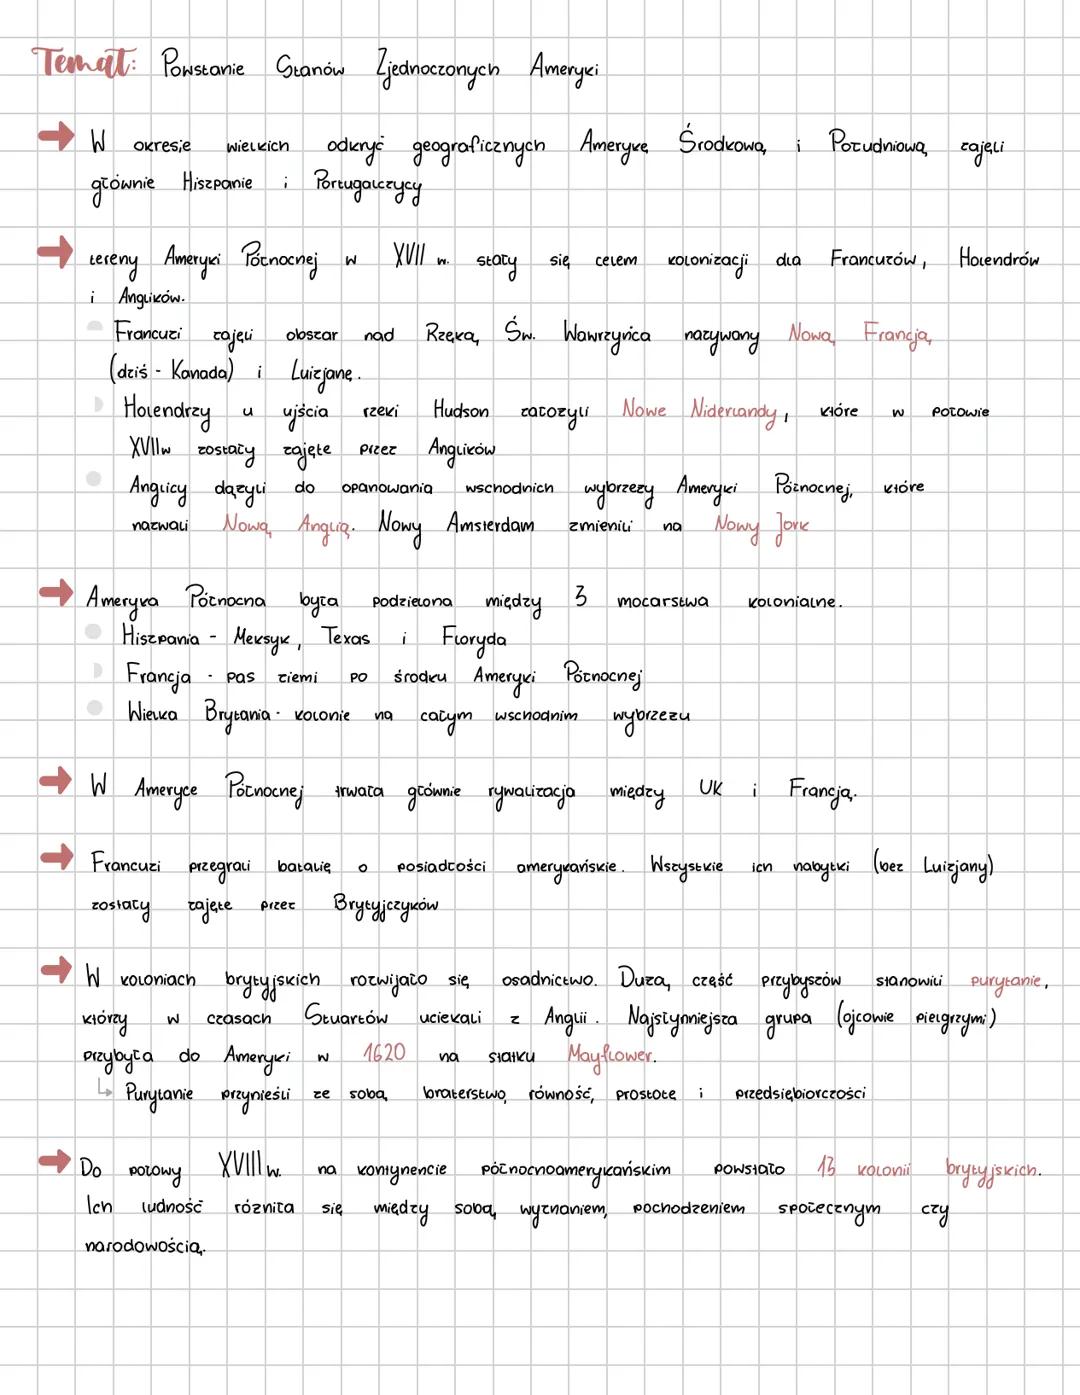 Temat: Powstanie Stanów Zjednoczonych Ameryki
W okresie wielkich odkryć geograficznych Amerykę Środkową i Południową zajęli
głównie Hiszpanie i Portugalczycy
tereny Ameryki Północnej w XVII w. stały się celem kolonizacji dla Francuzów, Holendrów
i Anglików.
Francuzi zajęli obszar nad Rzęką Św. Wawrzyńca nazywany Nową Francją
(dziś - Kanada) i Luizjanę.
Holendrzy u ujścia rzeki Hudson założyli Nowe Niderlandy, które w połowie
XVII w zostały zajęte przez Anglików
Anglicy dążyli do opanowania wschodnich wybrzeży Ameryki Północnej, które
nazwali Nową Anglią. Nowy Amsterdam zmienili na Nowy Jork
Ameryka Północna była podzielona między 3 mocarstwa kolonialne.
Hiszpania - Meksyk, Texas i Floryda
Francja - pas ziemi po środku Ameryki Północnej
Wielka Brytania - kolonie na całym wschodnim wybrzeżu
W Ameryce Północnej trwała głównie rywalizacja między UK i Francją.
Francuzi przegrali batalię o posiadłości amerykańskie. Wszystkie ich nabytki (bez Luizjany)
zostały zajęte przez Brytyjczyków
W koloniach brytyjskich rozwijało się osadnictwo. Dużą część przybyszów stanowili purytanie,
którzy w czasach Stuartów uciekali z Anglii. Najsłynniejsza grupa (ojcowie pielgrzymi)
przybyła do Ameryki w 1620 na statku Mayflower.
↳ Purytanie przynieśli ze sobą braterstwo, równość, prostotę i przedsiębiorczości
Do połowy XVIII w. na kontynencie północnoamerykańskim powstało 13 kolonii brytyjskich.
Ich ludność różniła się między sobą wyznaniem, pochodzeniem społecznym czy
narodowością.